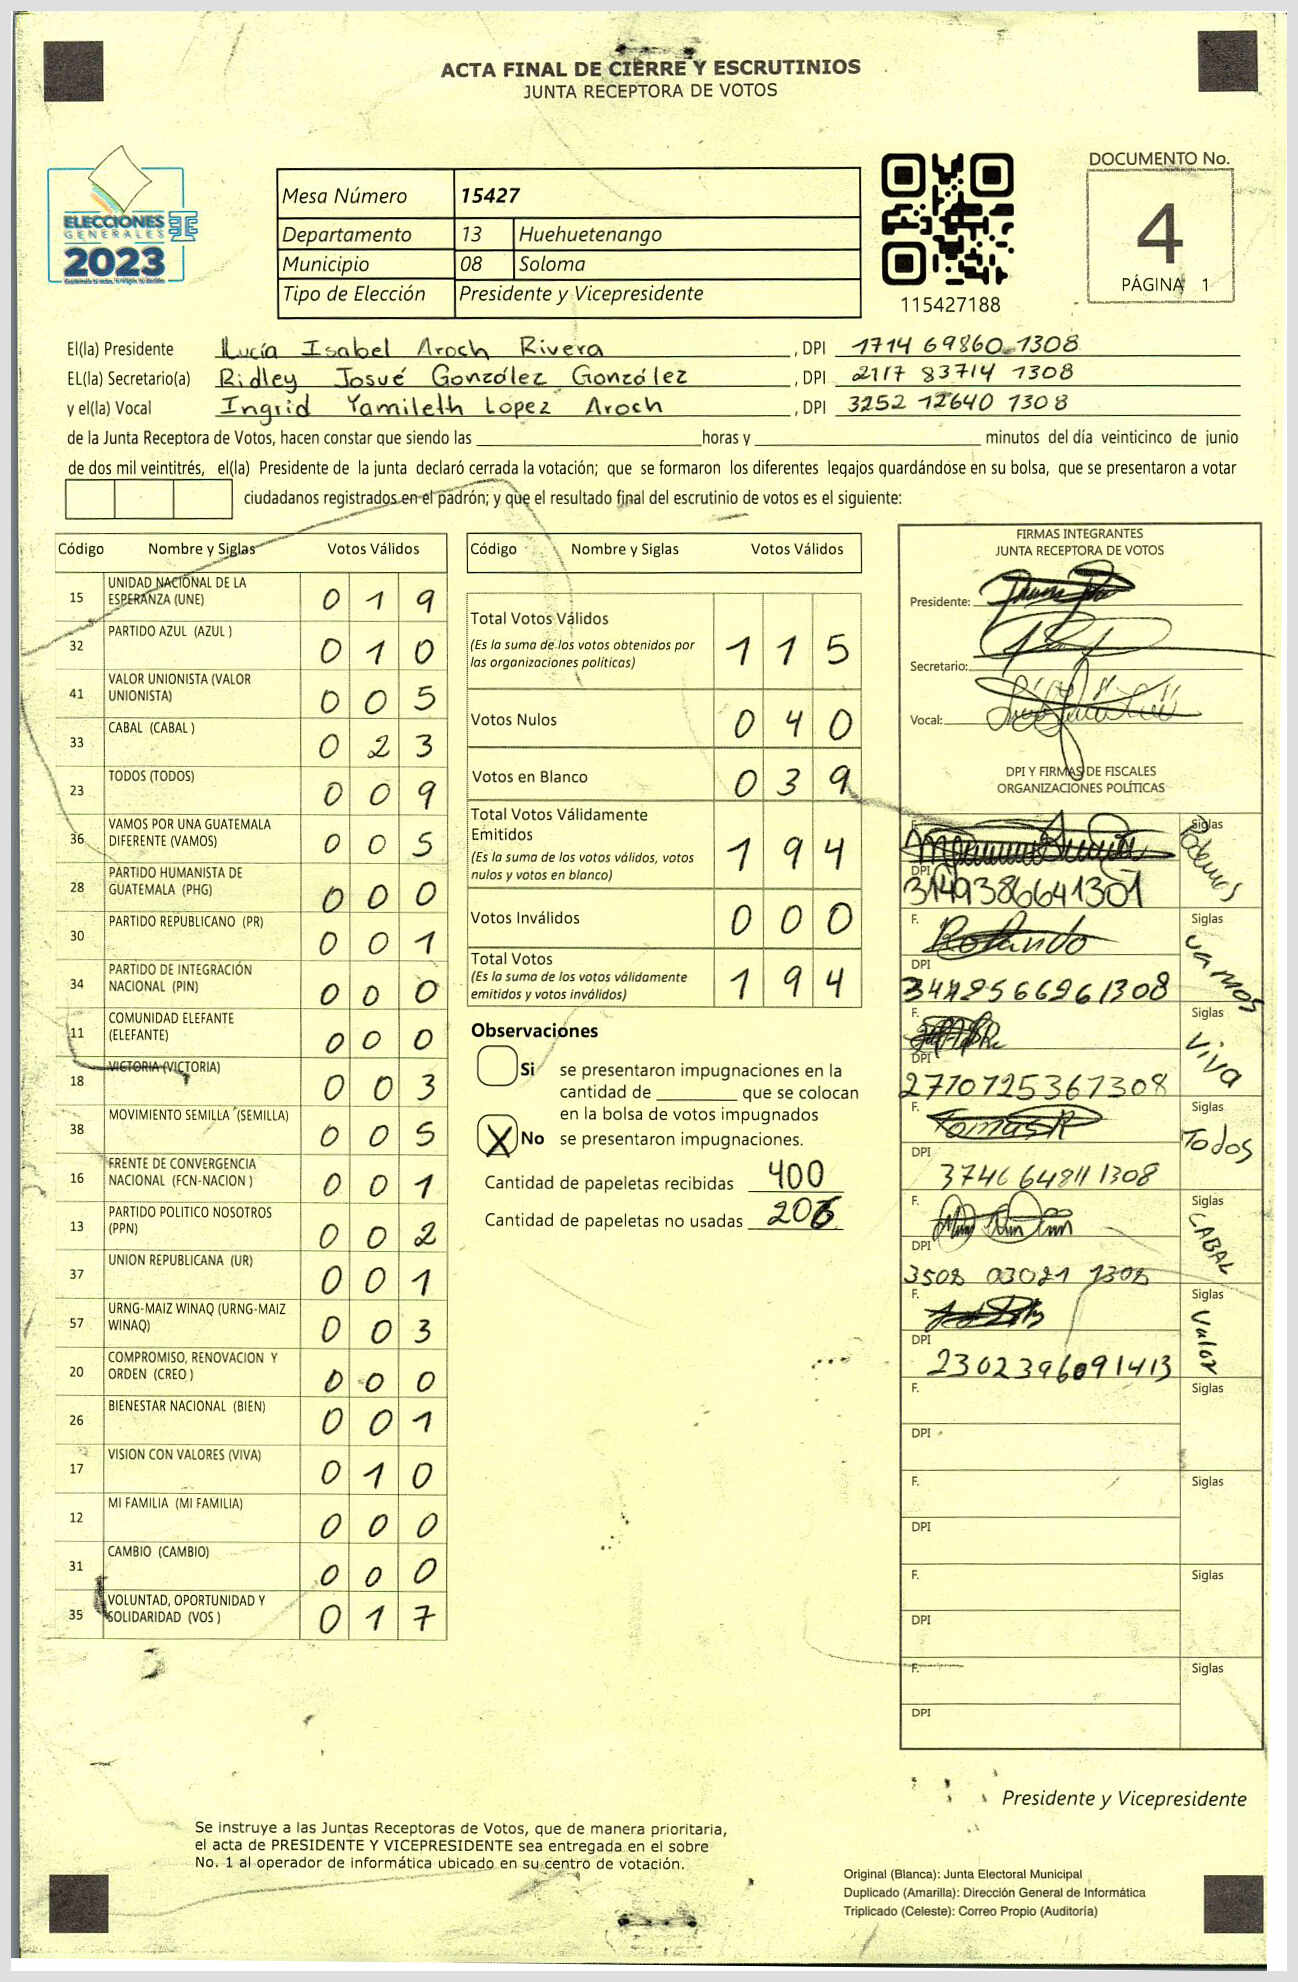 ACTA FINAL DE CIERRE Y ESCRUTINIOS
JUNTA RECEPTORA DE VOTOS
ELECCIONES
GENERALES
2023
Mesa Número 15427
Departamento 13 Huehuetenango
Municipio 08 Soloma
Tipo de Elección Presidente y Vicepresidente
115427188
DOCUMENTO No.
4
PÁGINA 1
El(la) Presidente Lucía Isabel Aroch Rivera, DPI 1714 69860 1308
EL(la) Secretario(a) Ridley Josué González González, DPI 2117 83714 1308
y el(la) Vocal Ingrid Yamileth Lopez Aroch, DPI 3252 12640 1308
de la Junta Receptora de Votos, hacen constar que siendo las horas y minutos del día veinticinco de junio
de dos mil veintitrés, el(la) Presidente de la junta declaró cerrada la votación; que se formaron los diferentes legajos guardándose en su bolsa, que se presentaron a votar
ciudadanos registrados en el padrón; y que el resultado final del escrutinio de votos es el siguiente:
Código Nombre y Siglas Votos Válidos
15 UNIDAD NACIONAL DE LA ESPERANZA (UNE) 0 1 9
32 PARTIDO AZUL (AZUL ) 0 1 0
41 VALOR UNIONISTA (VALOR UNIONISTA) 0 0 5
33 CABAL (CABAL ) 0 2 3
23 TODOS (TODOS) 0 0 9
36 VAMOS POR UNA GUATEMALA DIFERENTE (VAMOS) 0 0 5
28 PARTIDO HUMANISTA DE GUATEMALA (PHG) 0 0 0
30 PARTIDO REPUBLICANO (PR) 0 0 1
34 PARTIDO DE INTEGRACIÓN NACIONAL (PIN) 0 0 0
11 COMUNIDAD ELEFANTE (ELEFANTE) 0 0 0
18 VICTORIA (VICTORIA) 0 0 3
38 MOVIMIENTO SEMILLA (SEMILLA) 0 0 5
16 FRENTE DE CONVERGENCIA NACIONAL (FCN-NACION ) 0 0 1
13 PARTIDO POLITICO NOSOTROS (PPN) 0 0 2
37 UNION REPUBLICANA (UR) 0 0 1
57 URNG-MAIZ WINAQ (URNG-MAIZ WINAQ) 0 0 3
20 COMPROMISO, RENOVACION Y ORDEN (CREO ) 0 0 0
26 BIENESTAR NACIONAL (BIEN) 0 0 1
17 VISION CON VALORES (VIVA) 0 1 0
12 MI FAMILIA (MI FAMILIA) 0 0 0
31 CAMBIO (CAMBIO) 0 0 0
35 VOLUNTAD, OPORTUNIDAD Y SOLIDARIDAD (VOS ) 0 1 7
Código Nombre y Siglas Votos Válidos
Total Votos Válidos 1 1 5
(Es la suma de los votos obtenidos por
las organizaciones políticas)
Votos Nulos 0 4 0
Votos en Blanco 0 3 9
Total Votos Válidamente
Emitidos 1 9 4
(Es la suma de los votos válidos, votos
nulos y votos en blanco)
Votos Inválidos 0 0 0
Total Votos 1 9 4
(Es la suma de los votos válidamente
emitidos y votos inválidos)
Observaciones
Si se presentaron impugnaciones en la
cantidad de que se colocan
en la bolsa de votos impugnados
X No se presentaron impugnaciones.
Cantidad de papeletas recibidas 400
Cantidad de papeletas no usadas 206
FIRMAS INTEGRANTES
JUNTA RECEPTORA DE VOTOS
Presidente:
Secretario:
Vocal:
DPI Y FIRMAS DE FISCALES
ORGANIZACIONES POLÍTICAS
F. Siglas Podemos
DPI 3149386641301
F. Rolando Siglas Vamos
DPI
F. Siglas Viva
DPI 2710125361308
F. Tomas R Siglas Todos
DPI 3746 64811 1308
F. Siglas CABAL
DPI 3508 03021 1308
F. Siglas Valor
DPI 2302396091413
F. Siglas
DPI
F. Siglas
DPI
F. Siglas
DPI
F. Siglas
DPI
Presidente y Vicepresidente
Se instruye a las Juntas Receptoras de Votos, que de manera prioritaria,
el acta de PRESIDENTE Y VICEPRESIDENTE sea entregada en el sobre
No. 1 al operador de informática ubicado en su centro de votación.
Original (Blanca): Junta Electoral Municipal
Duplicado (Amarilla): Dirección General de Informática
Triplicado (Celeste): Correo Propio (Auditoría)